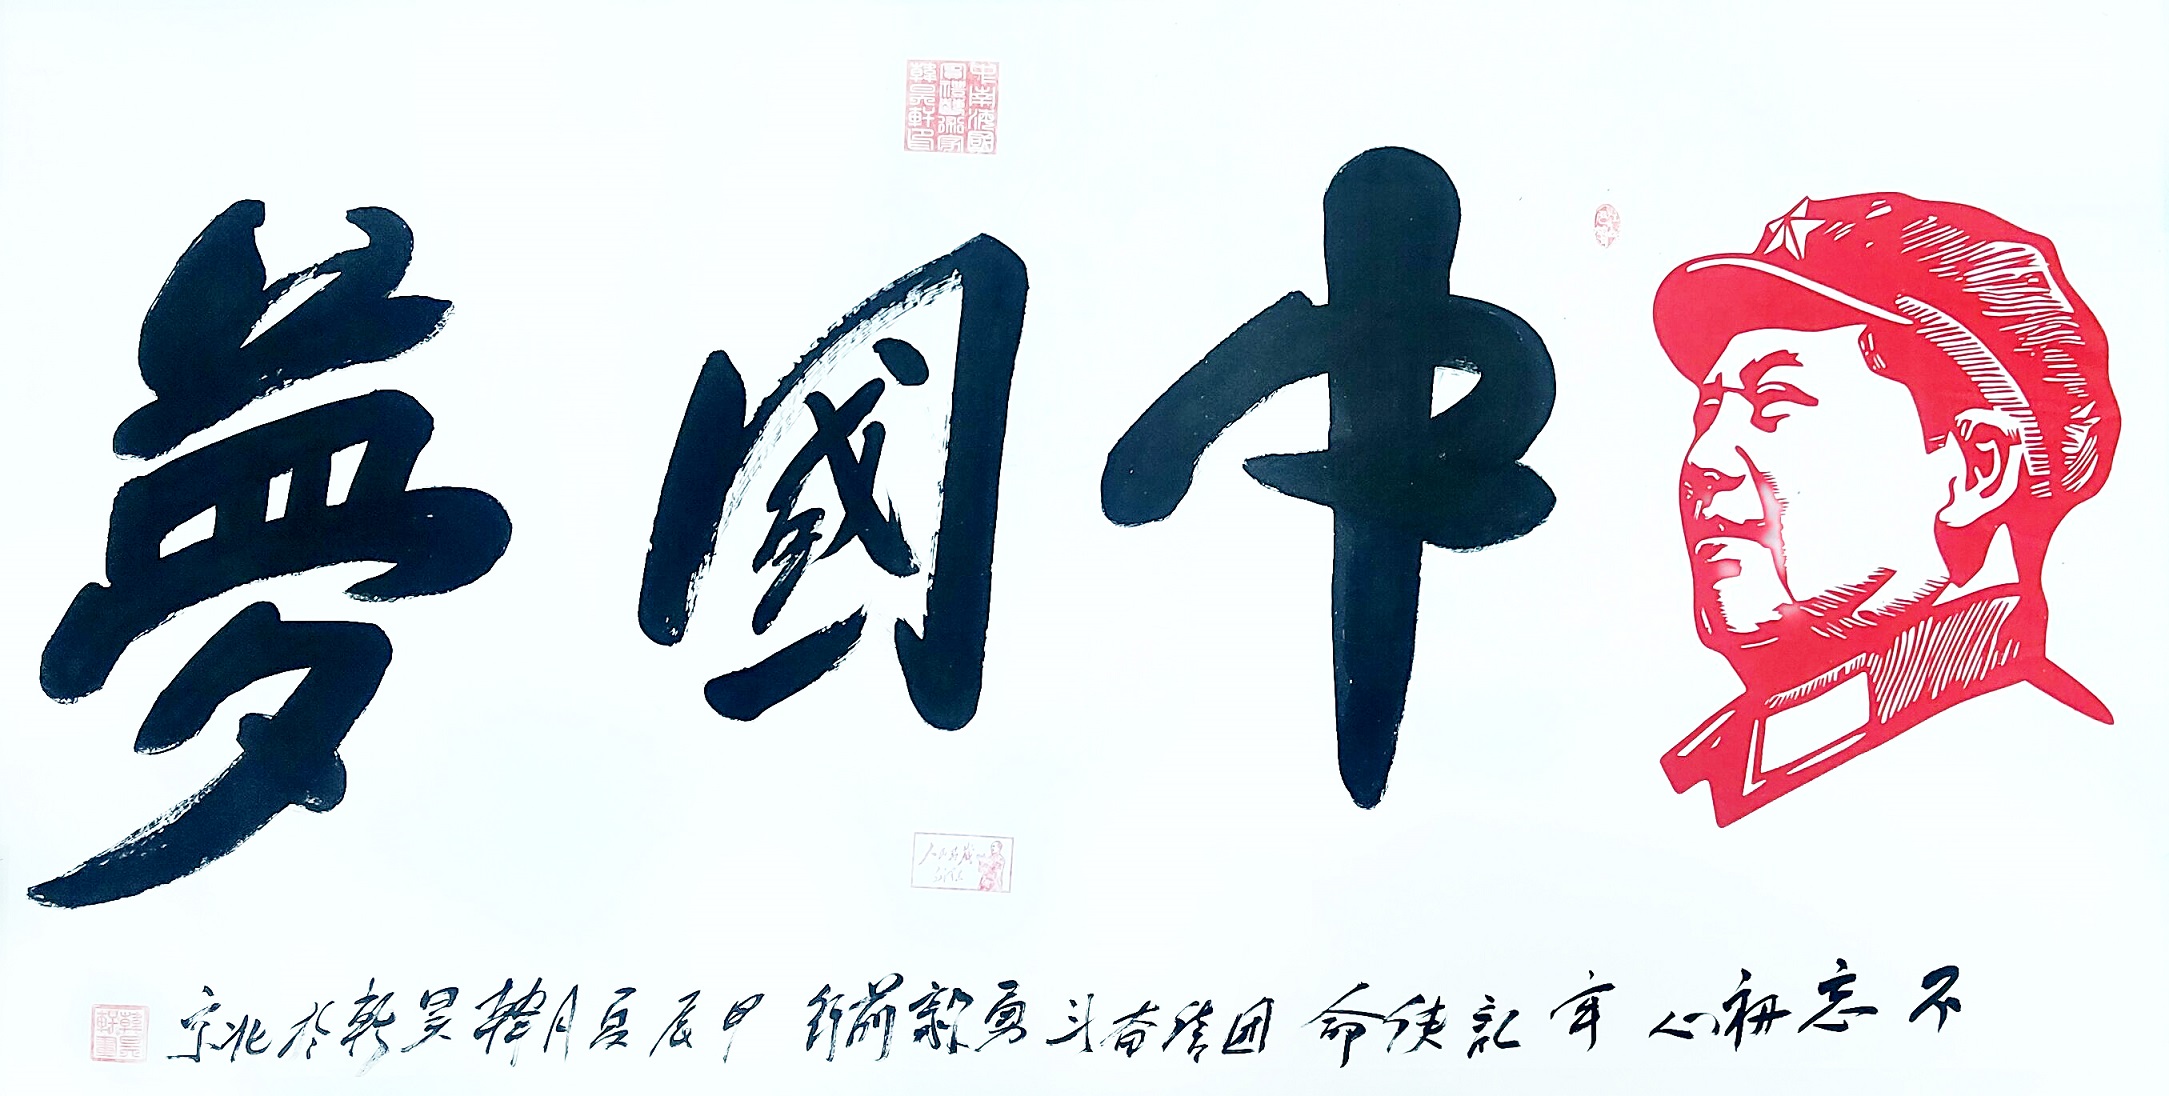 中國夢
韓昊軒印
不忘初心牢記使命团结奋斗勇毅前行甲辰夏月韓昊軒於北京